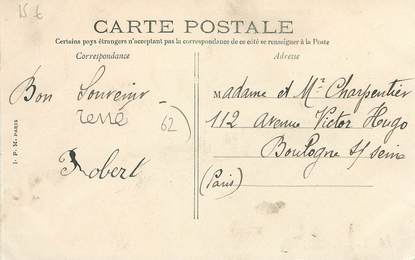 15 €
CARTE POSTALE
Certains pays étrangers n'acceptant pas la correspondance de ce côté se renseigner à la Poste
Correspondance
Adresse
Bon Souvenir
Robert
62
J. P. M. PARIS
Madame et Mr Charpentier
112 Avenue Victor Hugo
Boulogne s/ seine
(Paris)